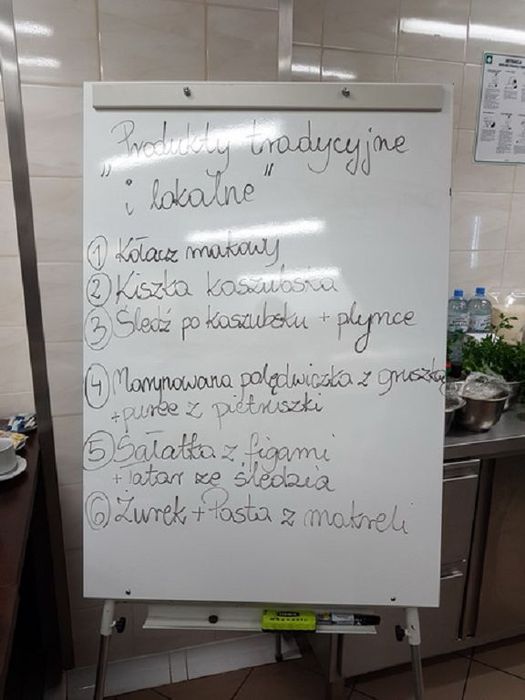 „Produkty tradycyjne
i lokalne”
1 Kołacz makowy
2 Kiszka kaszubska
3 Śledź po kaszubsku + plynce
4 Marynowana polędwiczka z gruszką
+ puree z pietruszki
5 Sałatka z figami
+ Tatar ze śledzia
6 Żurek + Pasta z makreli